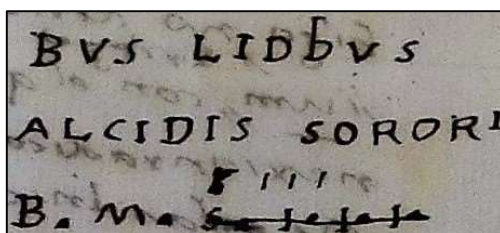 BVS LIDbVS
ALCIDIS SORORI
B. M. S.